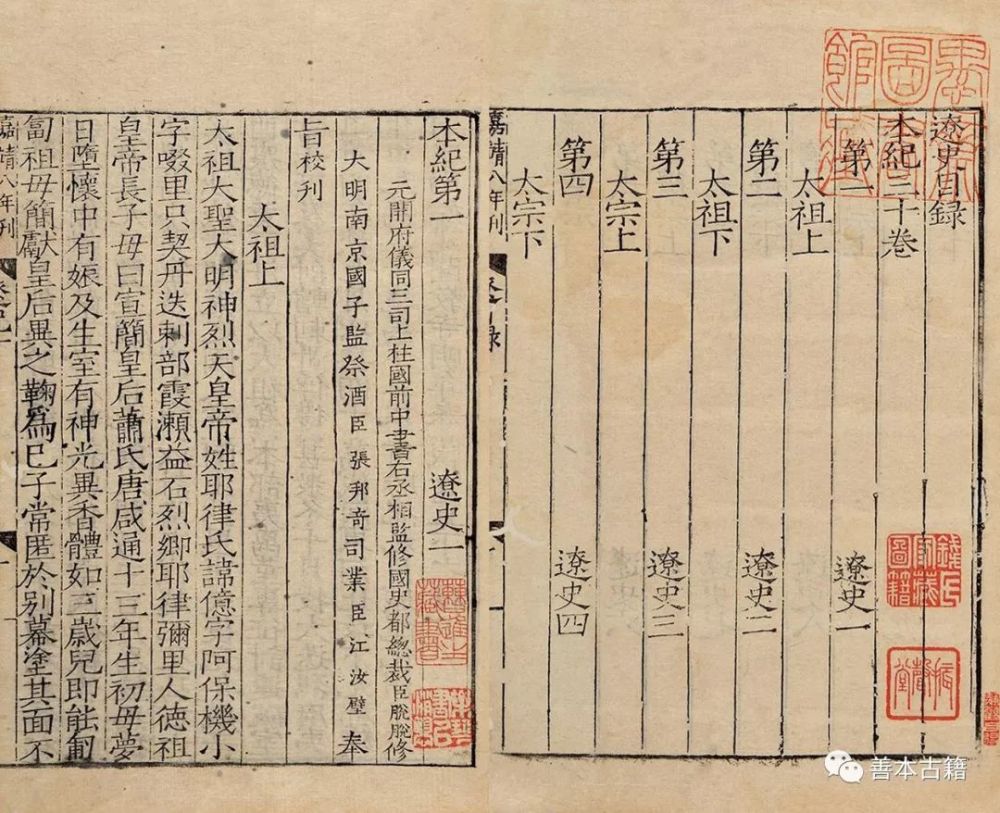 遼史目録
本紀三十卷
第一 遼史一
太祖上
第二 遼史二
太祖下
第三 遼史三
太宗上
第四 遼史四
太宗下
嘉靖八年刊
本紀第一 遼史一
元開府儀同三司上柱國前中書右丞相監修國史都總裁臣脫脫修
大明南京國子監祭酒臣張邦奇司業臣江汝璧奉
旨校刊
太祖上
太祖大聖大明神烈天皇帝姓耶律氏諱億字阿保機小
字啜里只契丹迭剌部霞瀨益石烈鄉耶律彌里人德祖
皇帝長子母曰宣簡皇后蕭氏唐咸通十三年生初母夢
日墮懷中有娠及生室有神光異香體如三歲兒即能匍
匐祖母簡獻皇后異之鞠爲己子常匿於別幕塗其面不
嘉靖八年刊
錢氏家藏圖籍
振聲堂
善本古籍